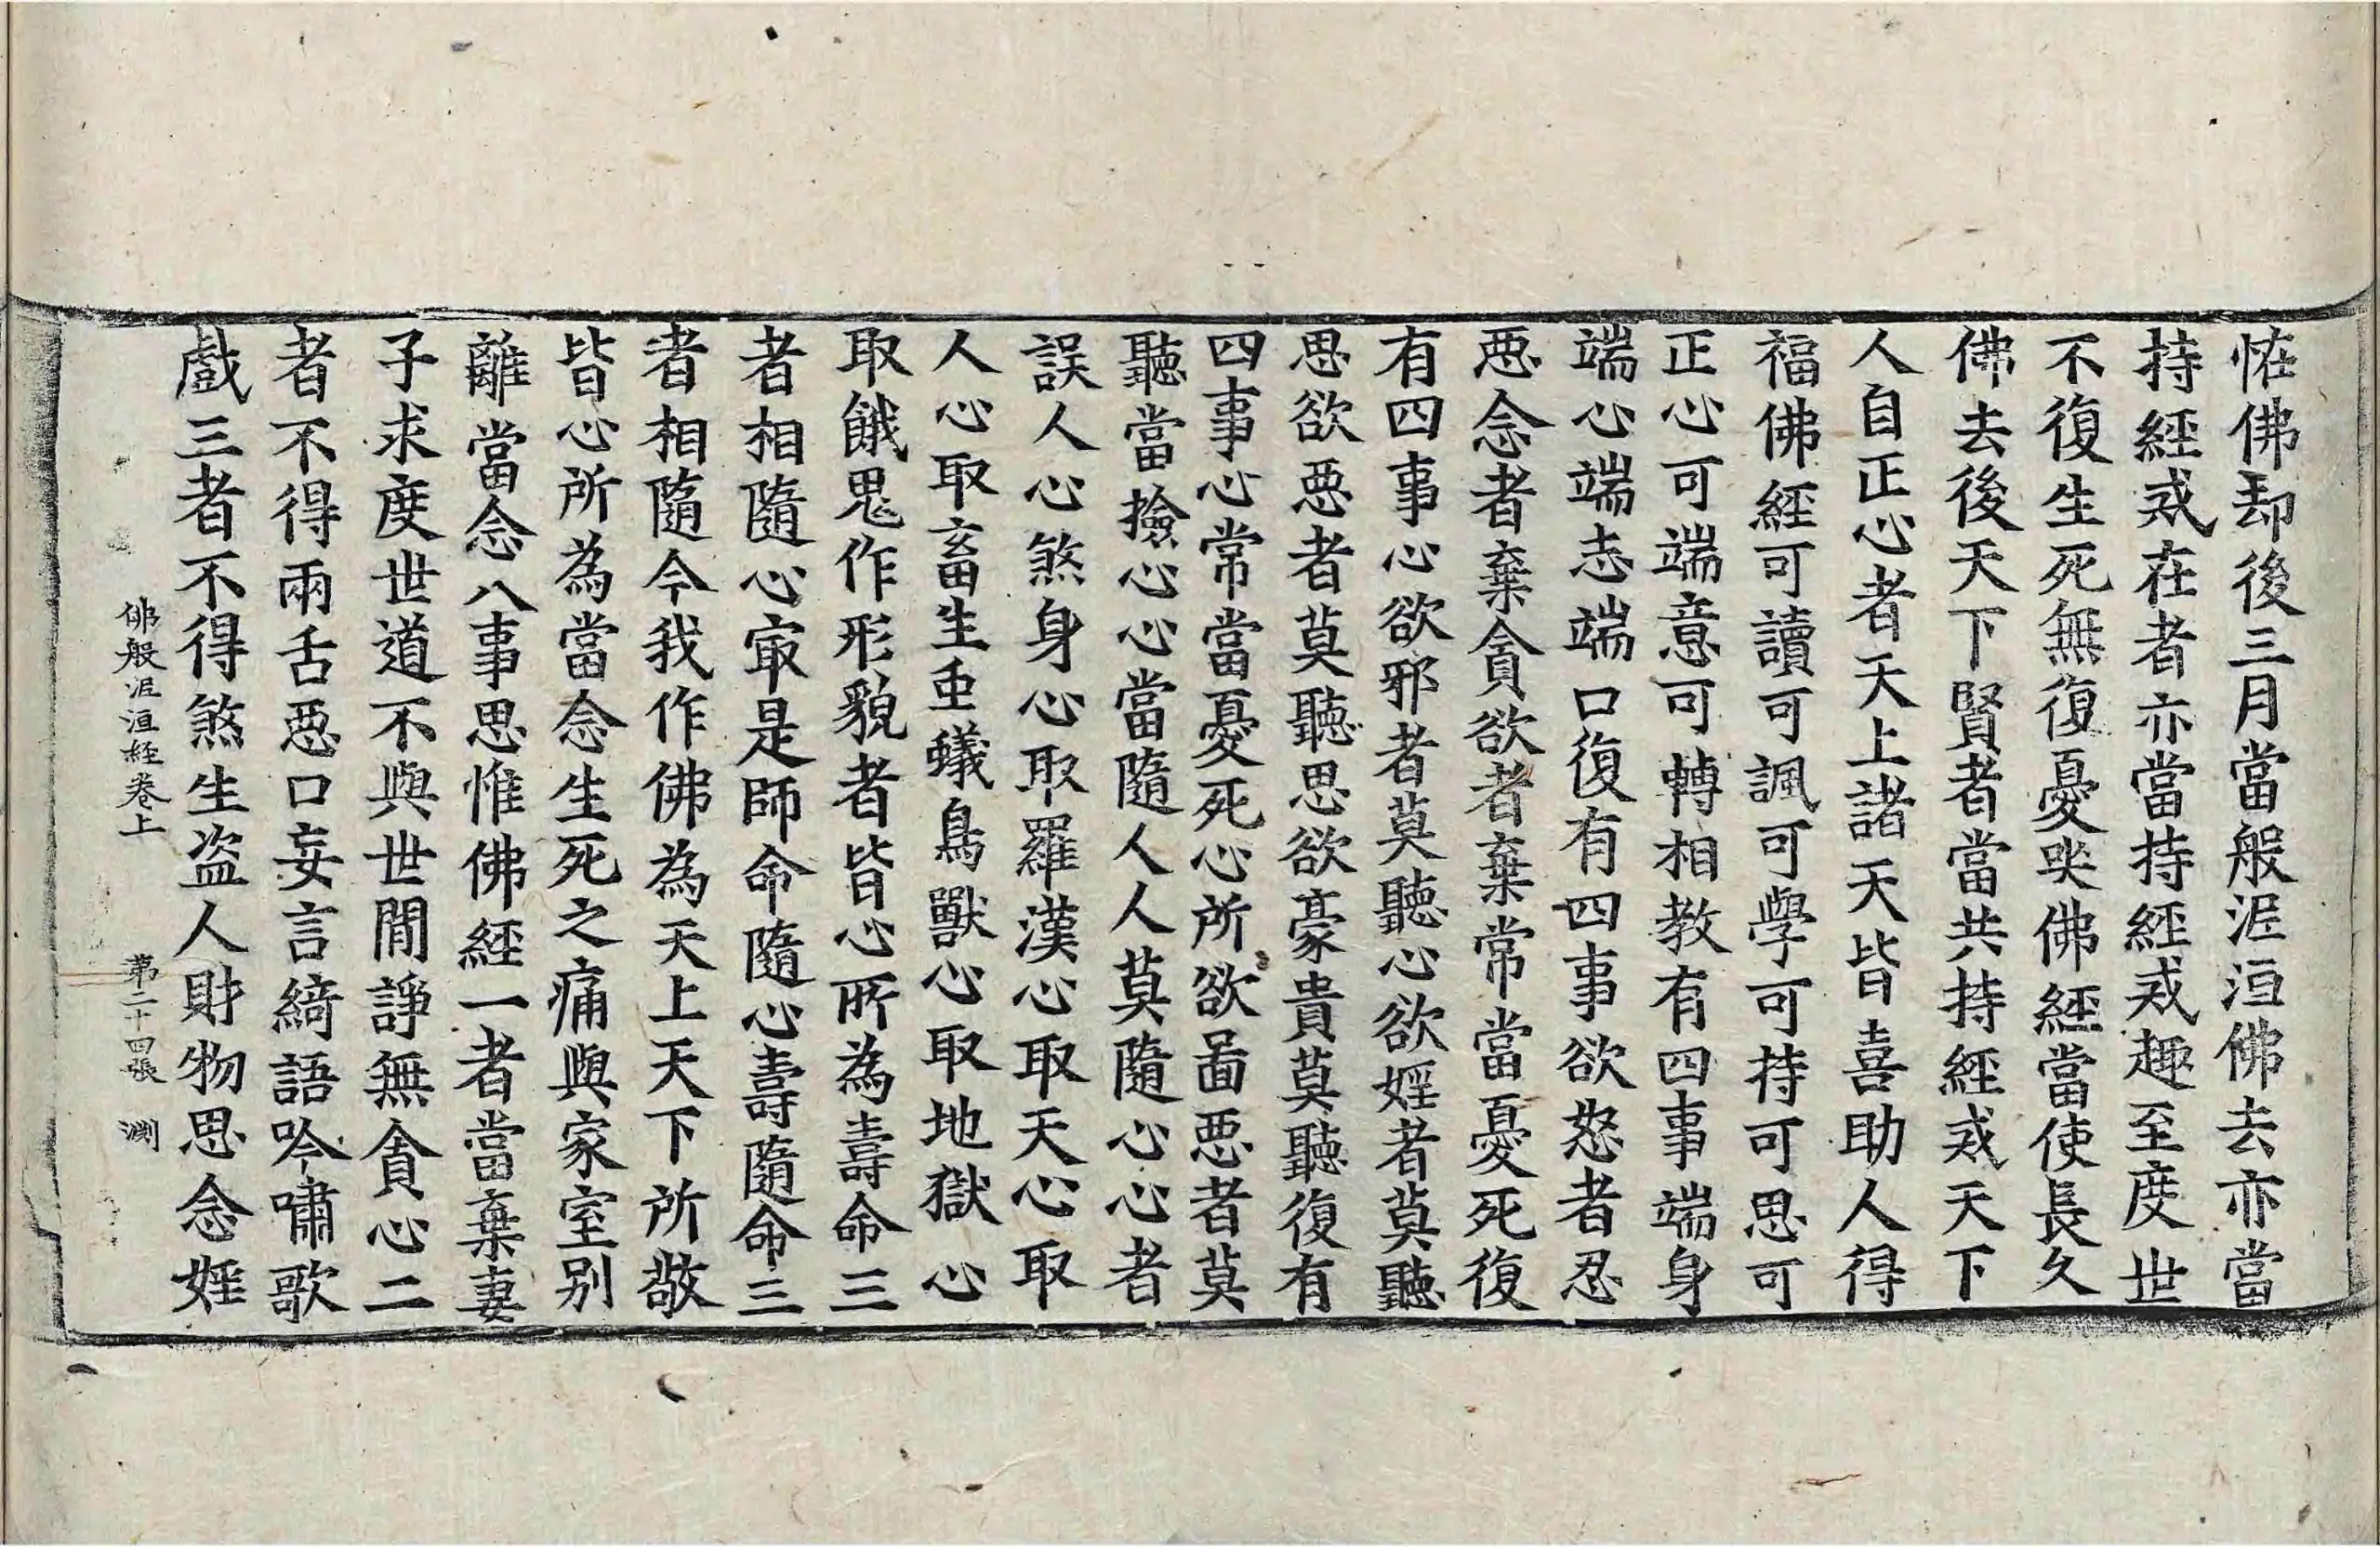 恠佛却後三月當般泥洹佛去亦當
持經戒在者亦當持經戒趣至度世
不復生死無復憂哭佛經當使長久
佛去後天下賢者當共持經戒天下
人自正心者天上諸天皆喜助人得
福佛經可讀可諷可學可持可思可
正心可端意可轉相教有四事端身
端心端志端口復有四事欲怒者忍
惡念者棄貪欲者棄常當憂死復
有四事心欲邪者莫聽心欲婬者莫聽
思欲惡者莫聽思欲豪貴莫聽復有
四事心常當憂死心所欲啚惡者莫
聽當撿心心當隨人人莫隨心心者
誤人心煞身心取羅漢心取天心取
人心取畜生虫蟻鳥獸心取地獄心
取餓鬼作形貌者皆心所為壽命三
者相隨心㝡是師命隨心壽隨命三
者相隨今我作佛為天上天下所敬
皆心所為當念生死之痛與家室别
離當念八事思惟佛經一者當棄妻
子求度世道不與世間諍無貪心二
者不得兩舌惡口妄言綺語吟嘯歌
戲三者不得煞生盜人財物思念婬
佛般泥洹経卷上 第二十四張 渊